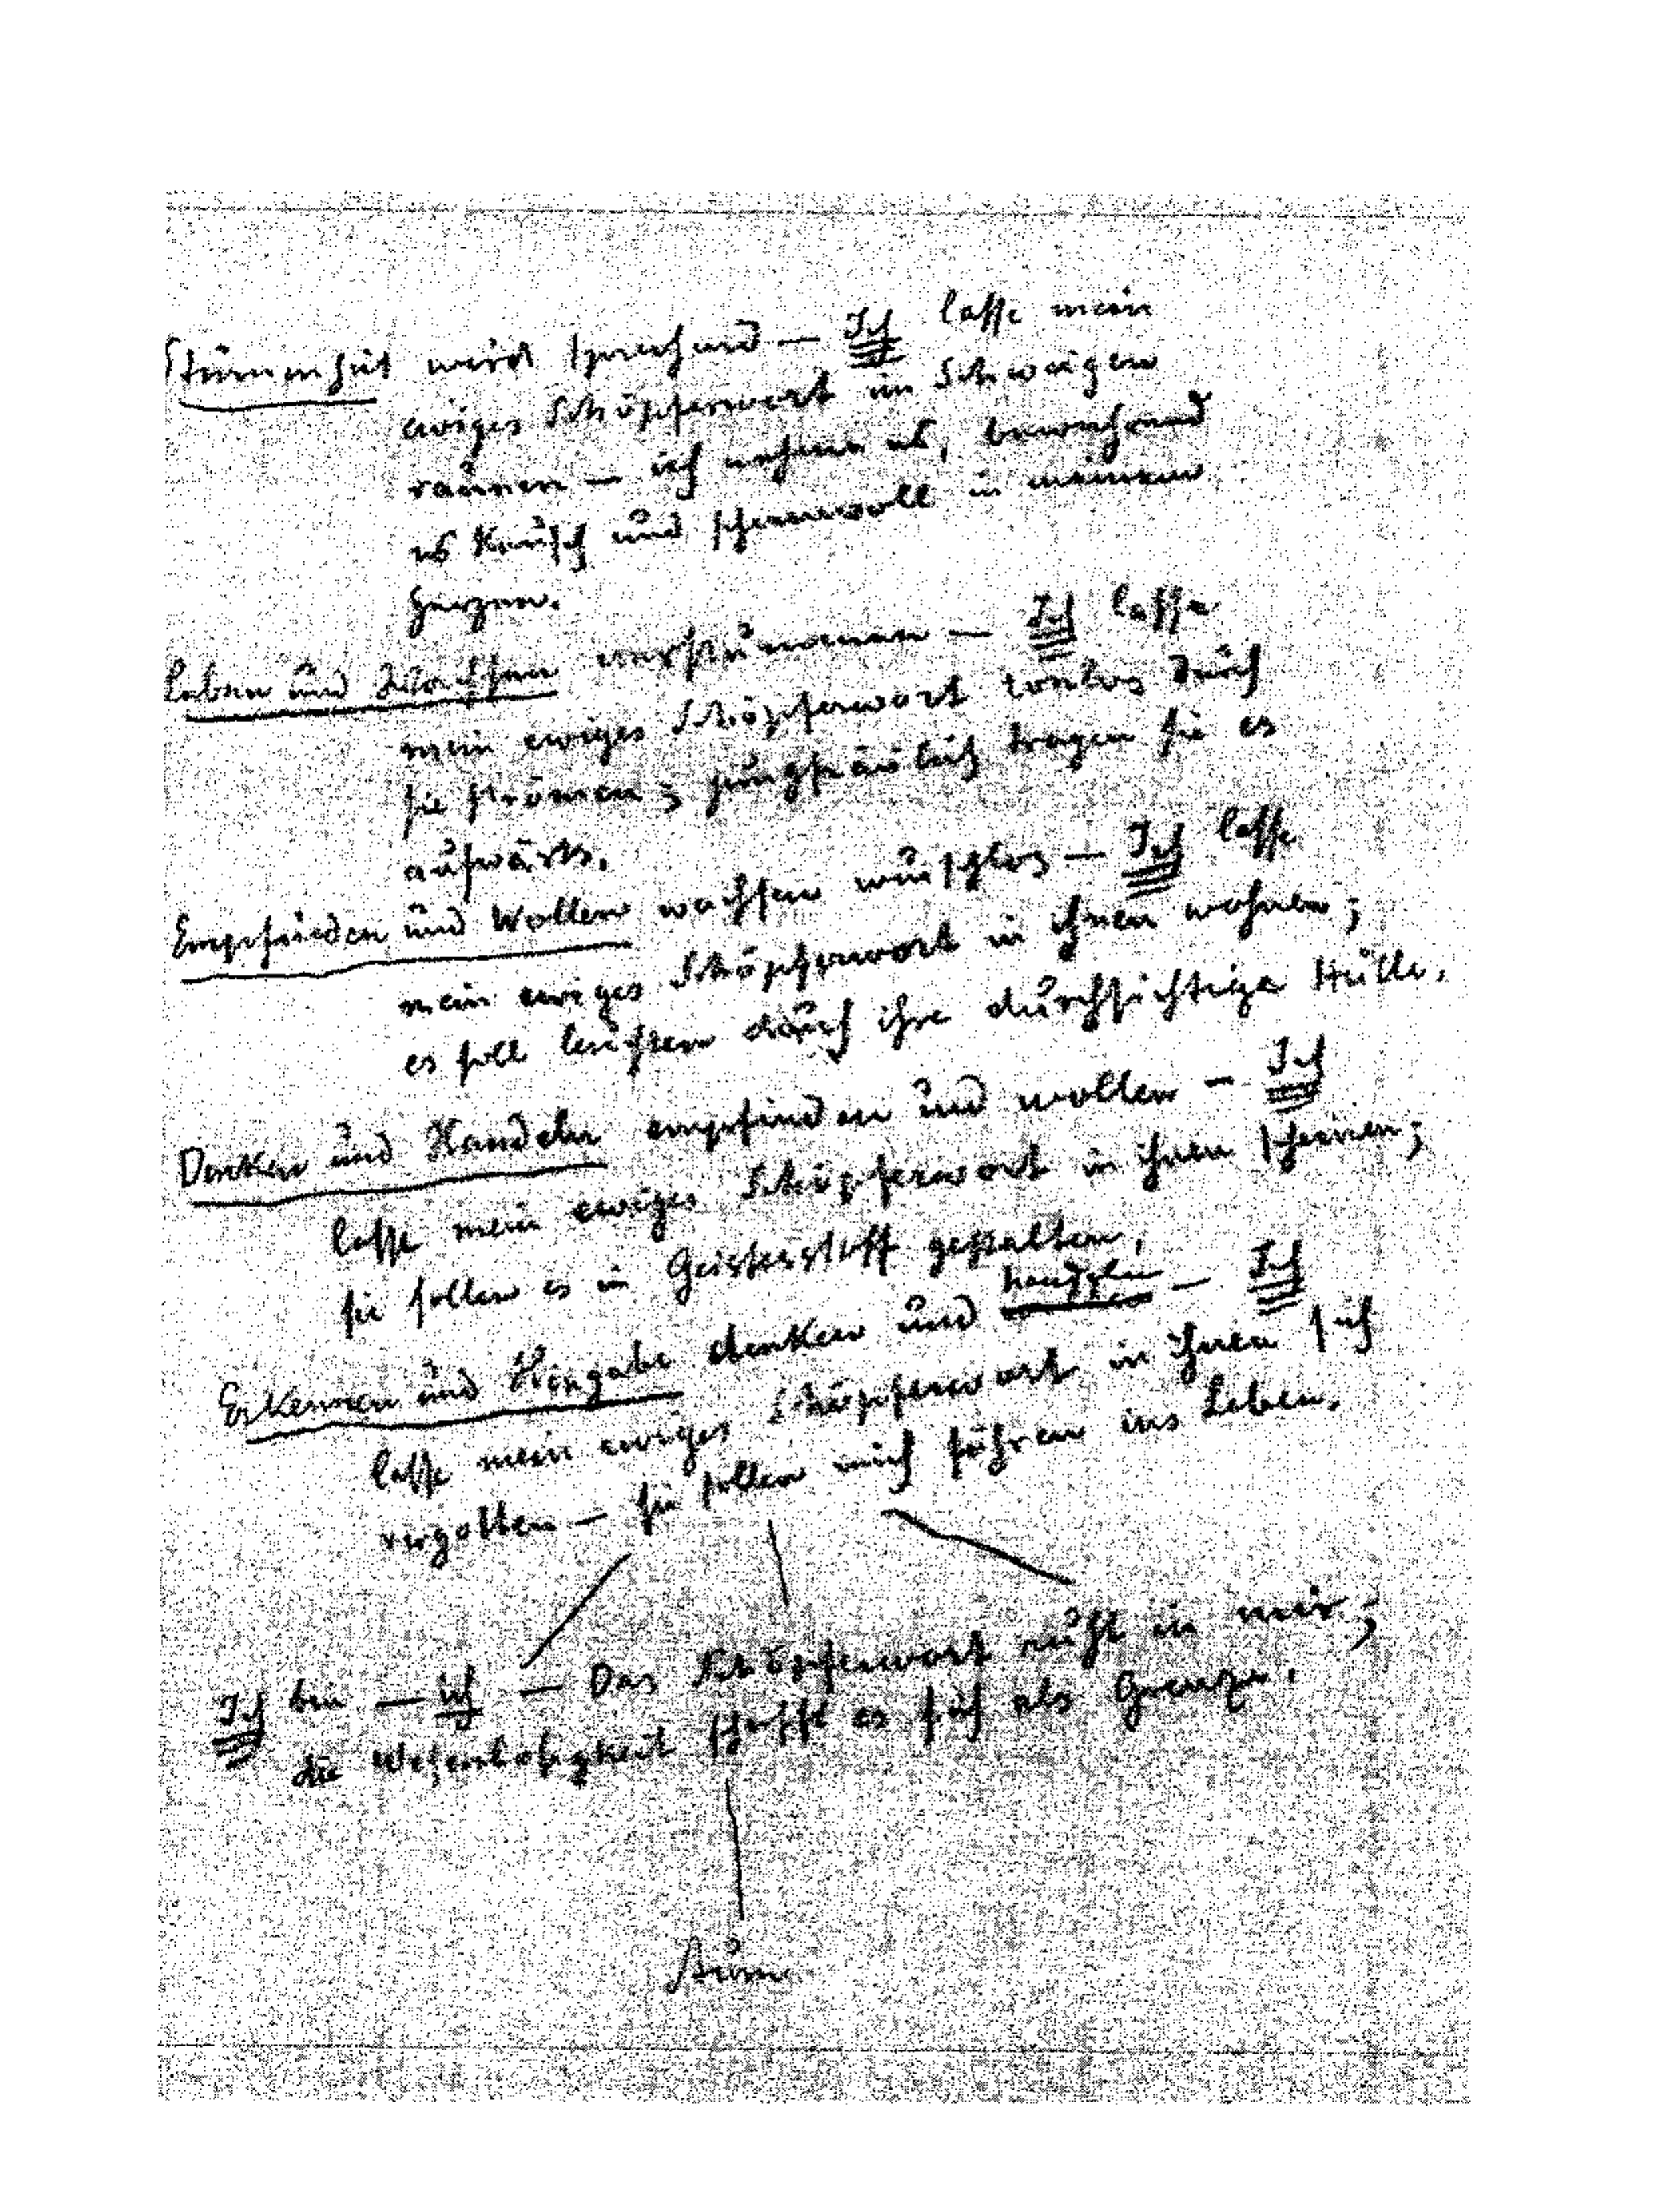 Stummheit wird sprechend — Ich lasse mein
ewiges Schöpferwort im Schweigen
raunen — ich nehme es, bewahrend
es keusch und scheuevoll in meinem
Herzen.
Leben und Wachsen verstummen — Ich lasse
mein ewiges Schöpferwort tonlos durch
sie strömen; jungfräulich tragen sie es
aufwärts.
Empfinden und Wollen wachsen wunschlos — Ich lasse
mein ewiges Schöpferwort in ihnen wohnen;
es soll leuchten durch ihre durchsichtige Hülle.
Denken und Handeln empfinden und wollen — Ich
lasse mein ewiges Schöpferwort in ihnen scheinen;
sie sollen es in Geistesstoff gestalten.
Erkennen und Hingabe denken und handeln — Ich
lasse mein ewiges Schöpferwort in ihnen sich
vergotten — sie sollen mich führen ins Leben.
Ich bin — ich — Das Schöpferwort ruht in mir;
die Wesenlosigkeit schafft es sich als Grenze.
Aum